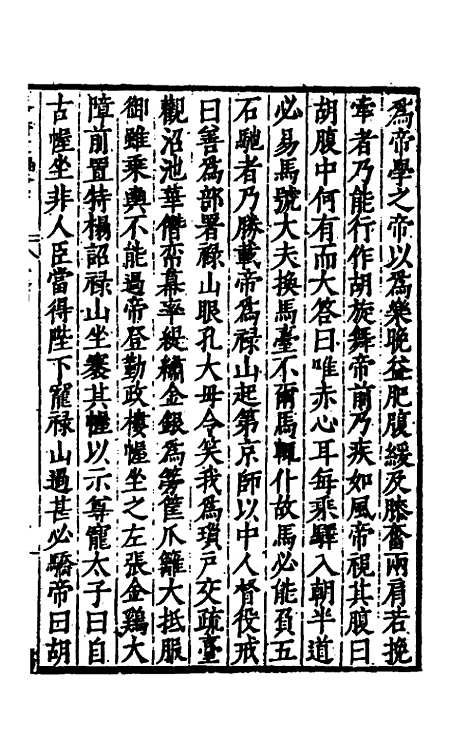 爲帝學之帝以爲樂晚益肥腹緩及膝奮兩肩若挽
牽者乃能行作胡旋舞帝前乃疾如風帝視其腹曰
胡腹中何有而大答曰唯赤心耳每乘驛入朝半道
必易馬號大夫換馬臺不爾馬輒仆故馬必能負五
石馳者乃勝載帝爲祿山起第京師以中人督役戒
曰善爲部署祿山眼孔大毋令笑我爲瑣戸交疏臺
觀沼池華僭帟幕率緹繡金銀爲筹筐爪籬大抵服
御雖乘輿不能過帝登勤政樓幄坐之左張金鷄大
障前置特榻詔祿山坐褰其幄以示尊寵太子曰自
古幄坐非人臣當得陛下寵祿山過甚必驕帝曰胡